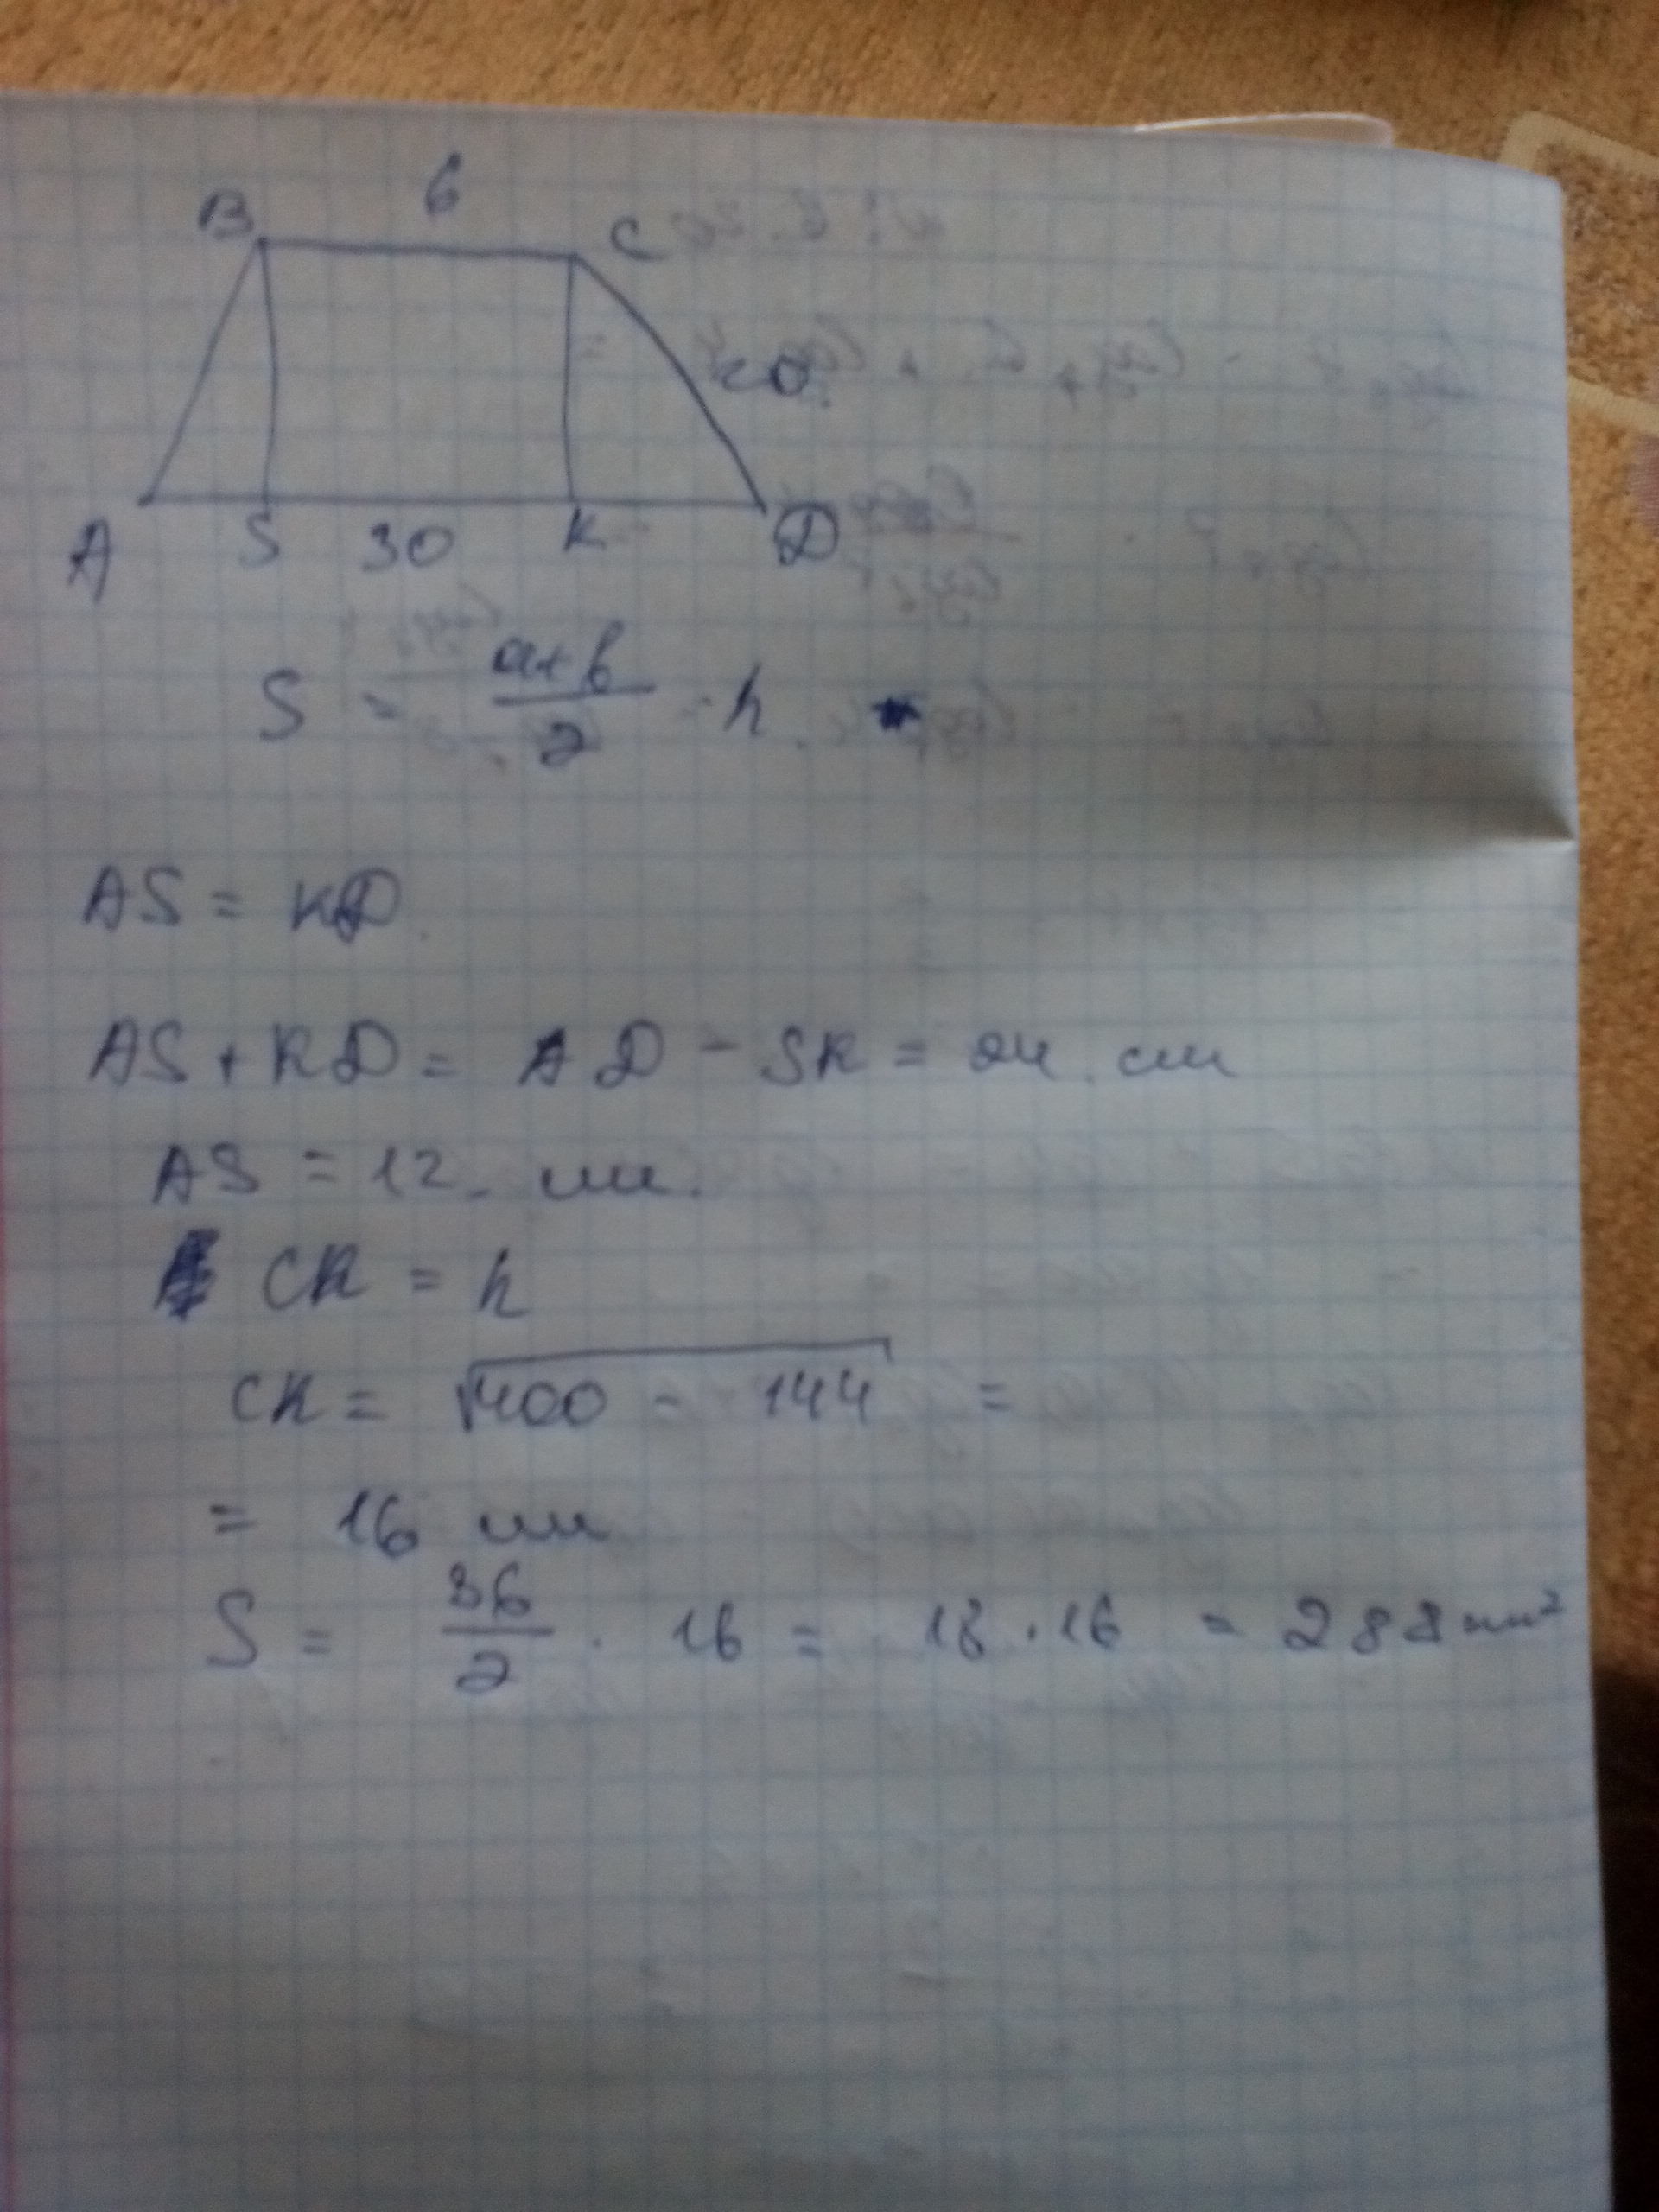 6
B C
20
A S 30 K D
S = a+b/2 · h
AS = KD
AS + KD = AD - SK = 24 см
AS = 12 см.
CK = h
CK = √400 - 144 =
= 16 см
S = 36/2 · 16 = 18 · 16 = 288 см²